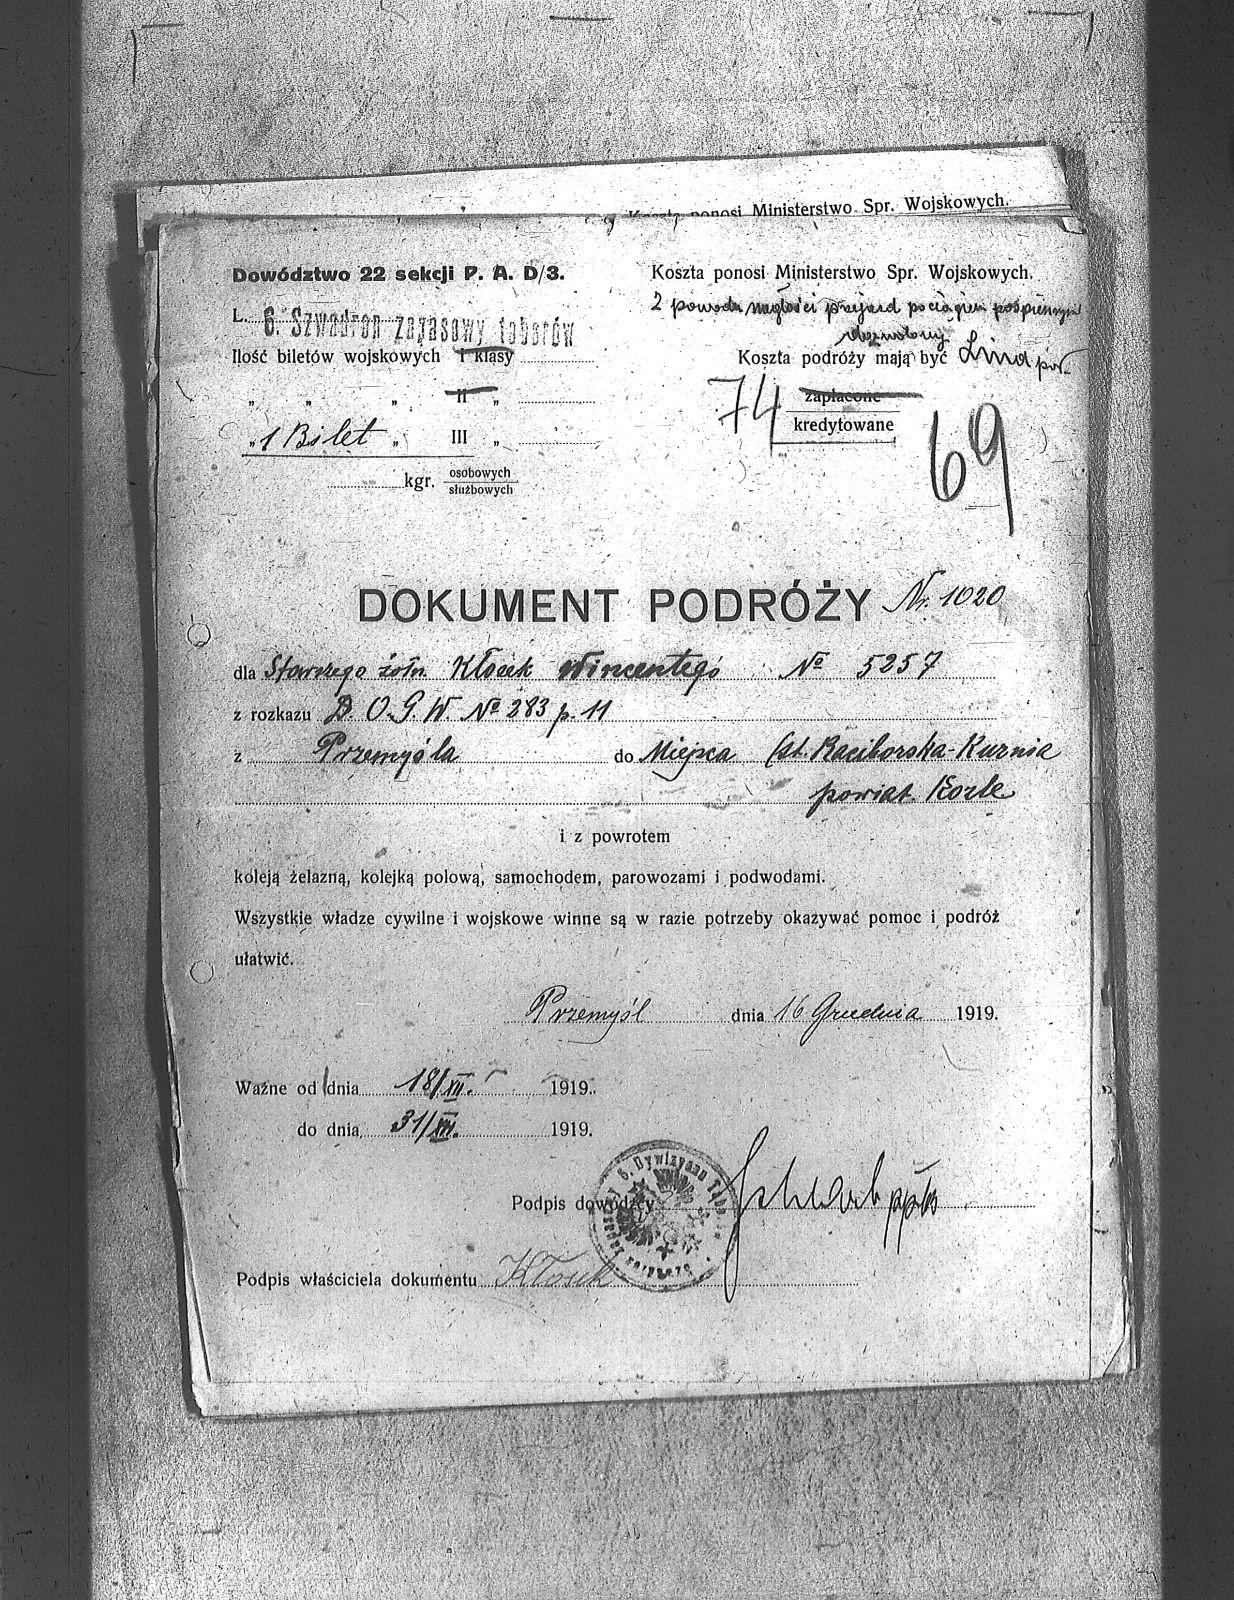 Koszta ponosi Ministerstwo Spr. Wojskowych.
Dowództwo 22 sekcji P. A. D/3.
Koszta ponosi Ministerstwo Spr. Wojskowych.
L. 6. Szwadron zapasowy taborów
Z powodu nagłości przejazd pociągiem pośpiesznym
dozwolony
Ilość biletów wojskowych I klasy
Koszta podróży mają być
" " " II "
74 zapłacone
" 1 Bilet " III "
kredytowane
69
kgr. osobowych
służbowych
DOKUMENT PODRÓŻY Nr. 1020
dla Starszego żołn. Kłosek Wincentego № 5257
z rozkazu D. O. G. W. № 283 p. 11
z Przemyśla do Miejsca (st. Raciborska-Kuznia
powiat. Kozle
i z powrotem
koleją żelazną, kolejką polową, samochodem, parowozami i podwodami.
Wszystkie władze cywilne i wojskowe winne są w razie potrzeby okazywać pomoc i podróż
ułatwić.
Przemyśl dnia 16 Grudnia 1919.
Ważne od dnia 18/XII. 1919.
do dnia 31/XII. 1919.
6. Dywizyonu
Podpis dowódcy
Podpis właściciela dokumentu Kłosek